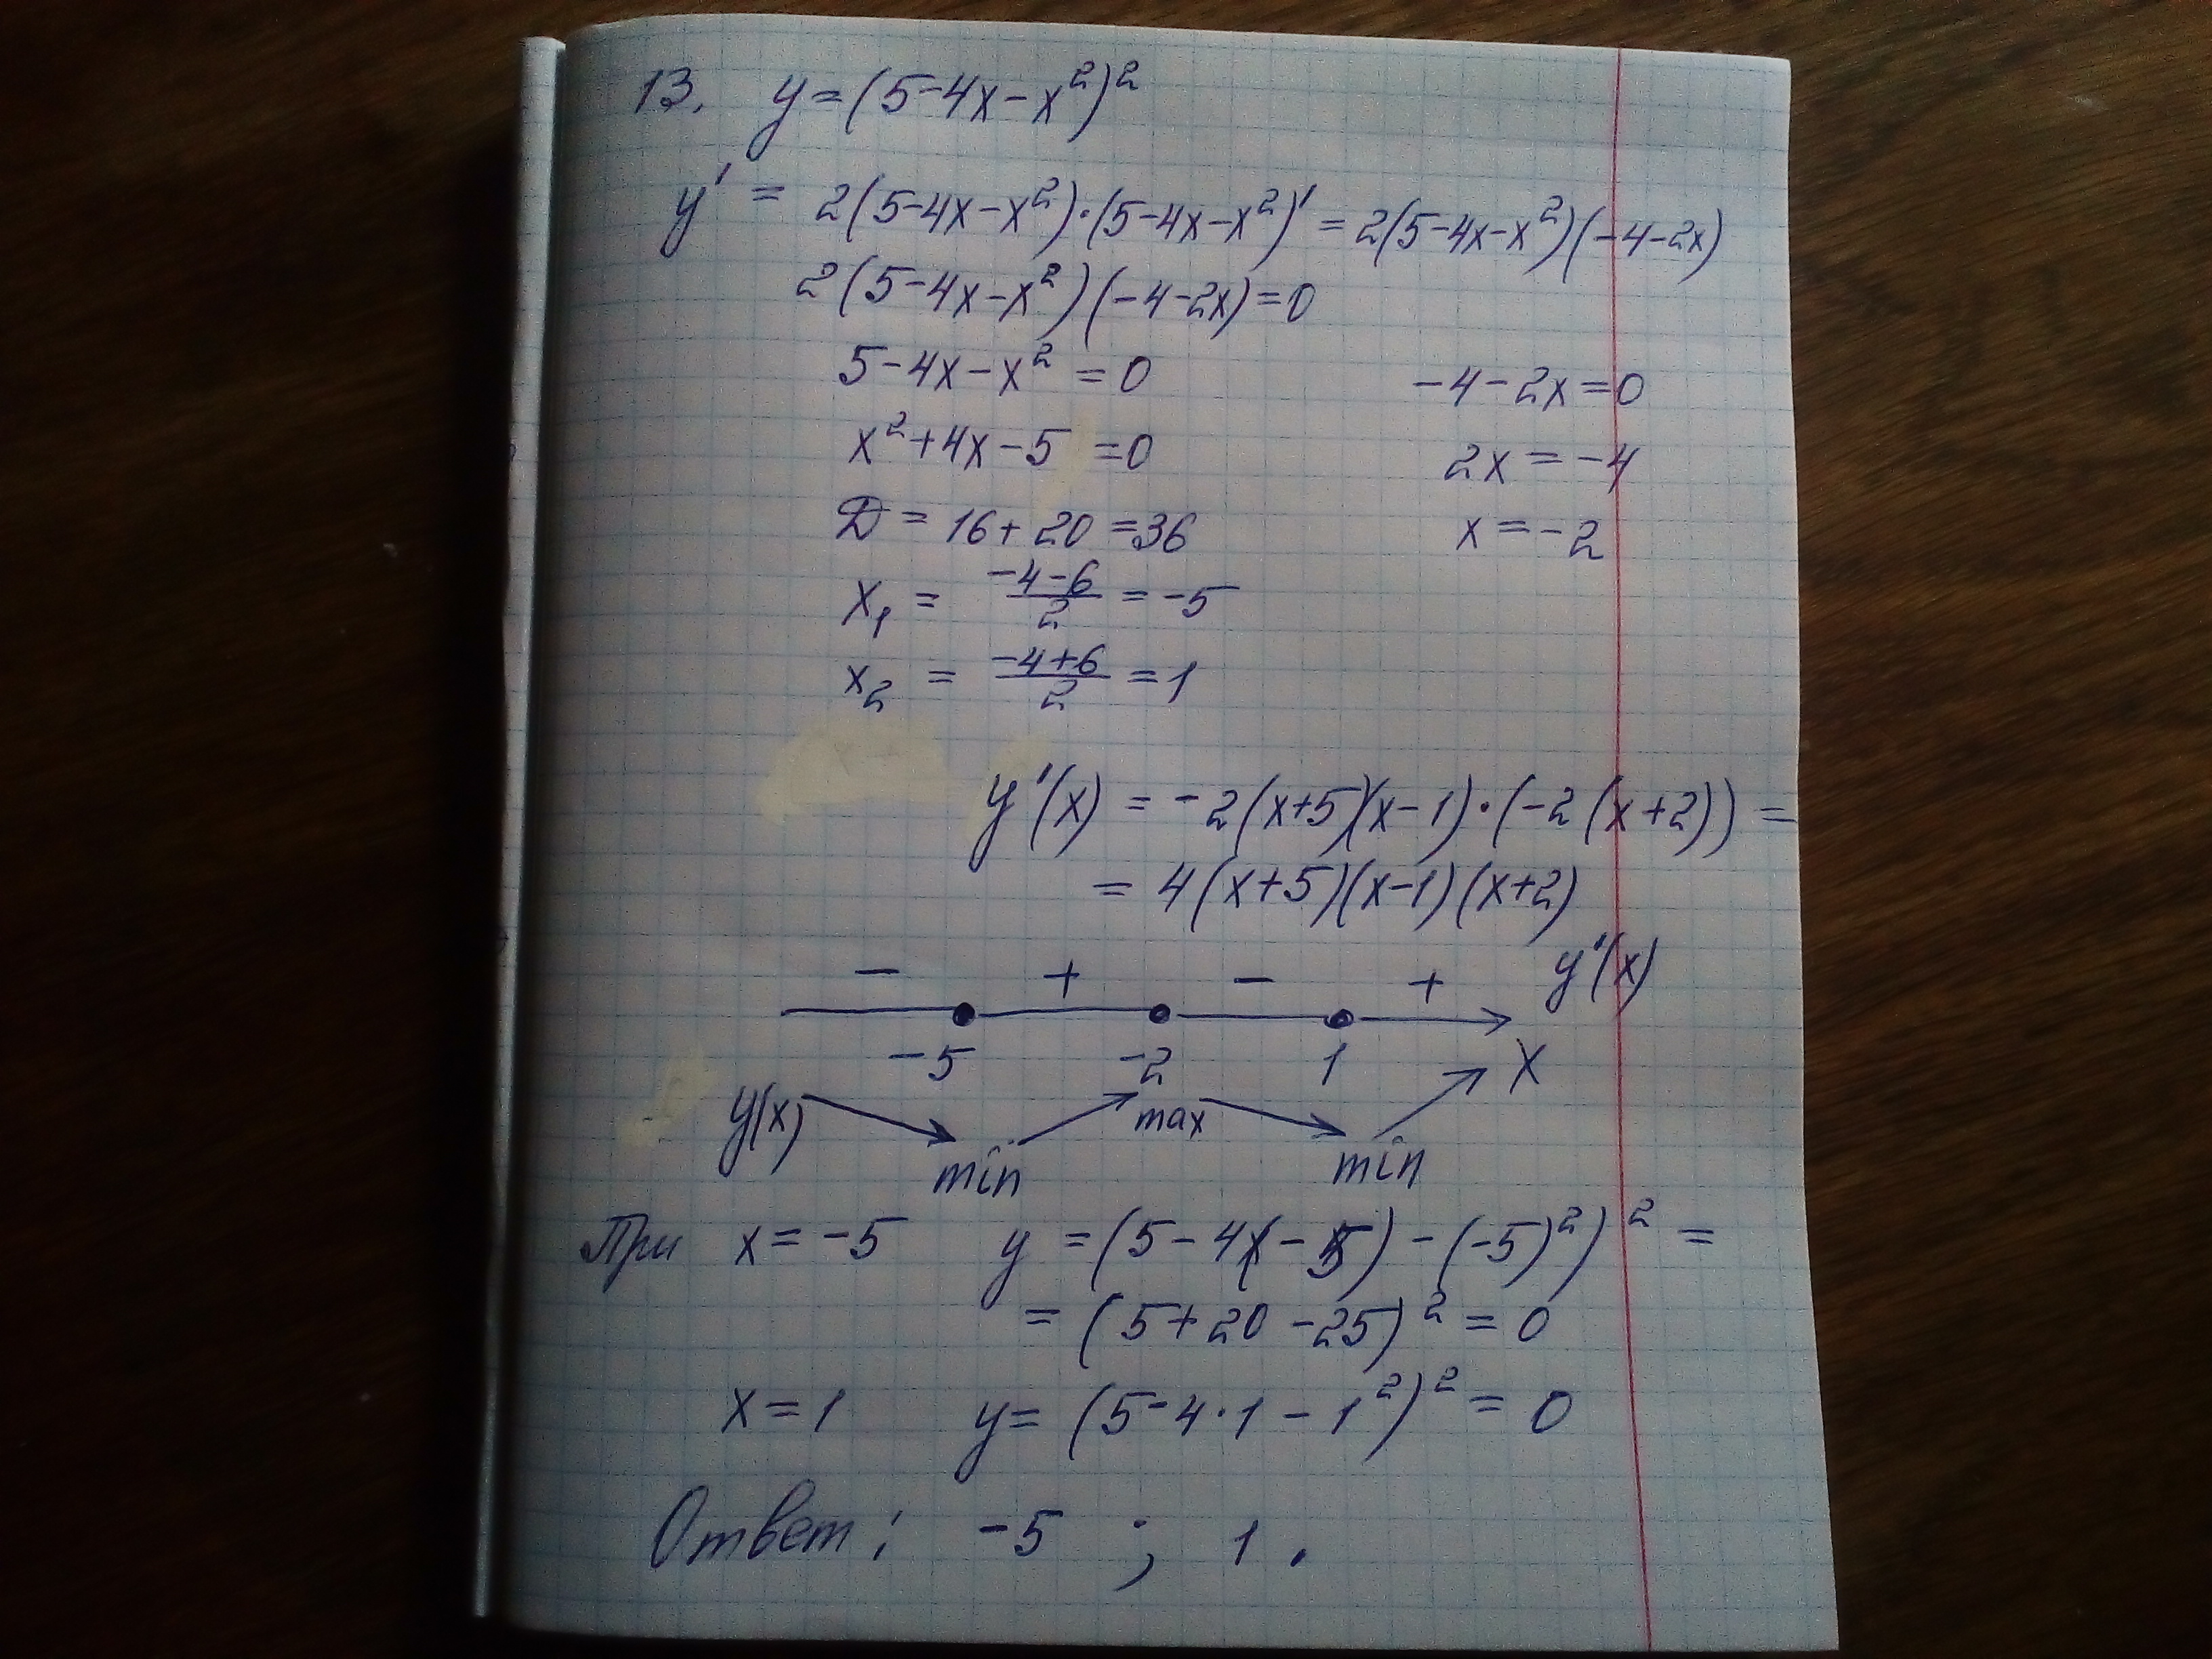 13. y=(5-4x-x²)²
y' = 2(5-4x-x²)·(5-4x-x²)' = 2(5-4x-x²)(-4-2x)
2(5-4x-x²)(-4-2x)=0
5-4x-x² = 0 -4-2x=0
x²+4x-5 =0 2x = -4
D = 16+20 =36 x = -2
x₁ = (-4-6)/2 = -5
x₂ = (-4+6)/2 = 1
y'(x) = -2(x+5)(x-1)·(-2(x+2)) =
= 4(x+5)(x-1)(x+2)
- + - + y'(x)
-5 -2 1 x
y(x) min max min
При x = -5 y = (5-4·(-5)-(-5)²)² =
= (5+20-25)² = 0
x = 1 y = (5-4·1-1²)² = 0
Ответ: -5 ; 1.